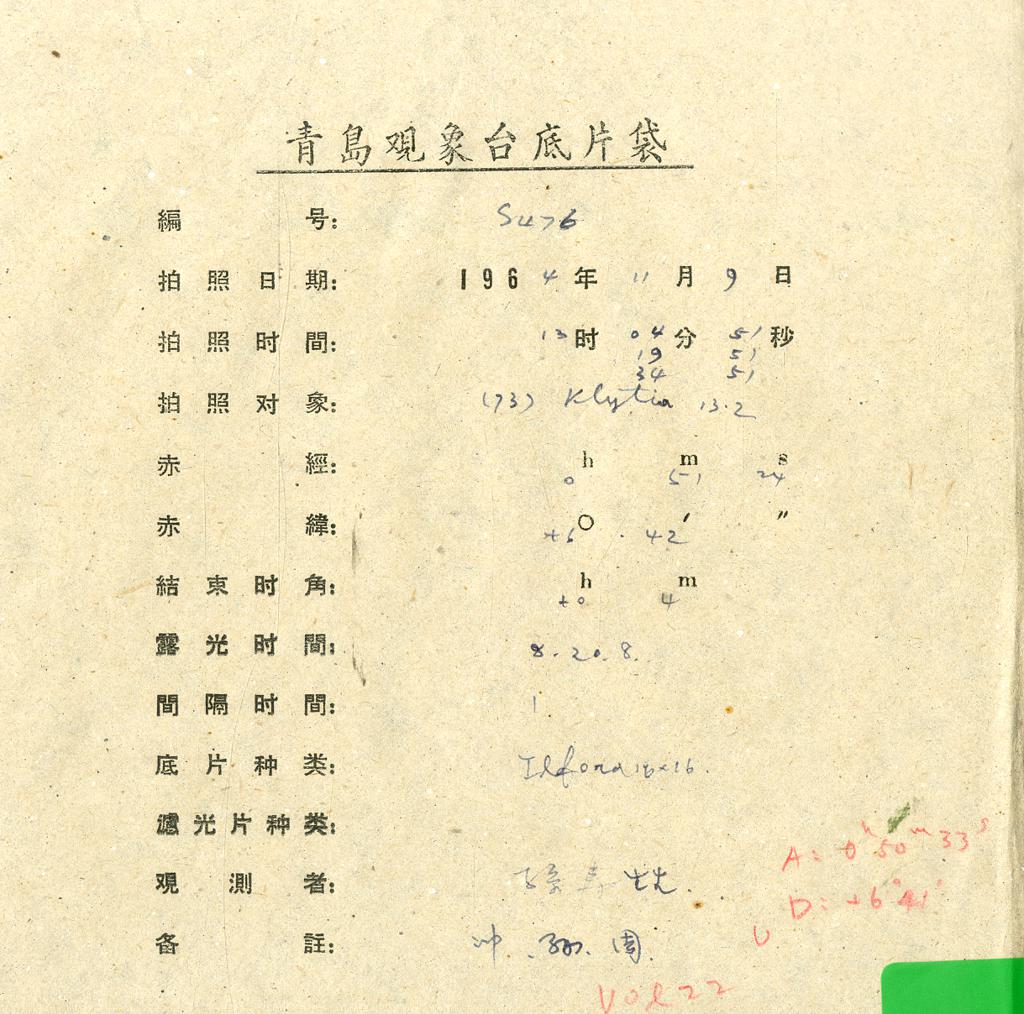 青島观象台底片袋
編号: S476
拍照日期: 1964年 11月 9日
拍照时間: 13时 04分 51秒
19 51
34 51
拍照对象: (73) Klytia 13.2
赤經: 0h 51m 24s
赤緯: +6° 42′ ″
結束时角: +0h 4m
露光时間: 8. 20. 8.
間隔时間: 1
底片种类: Ilford 16×16.
濾光片种类:
观測者:
A: 0h 50m 33s
D: +6° 41′
备註: 冲. 孙. 周.
U
VOl 22